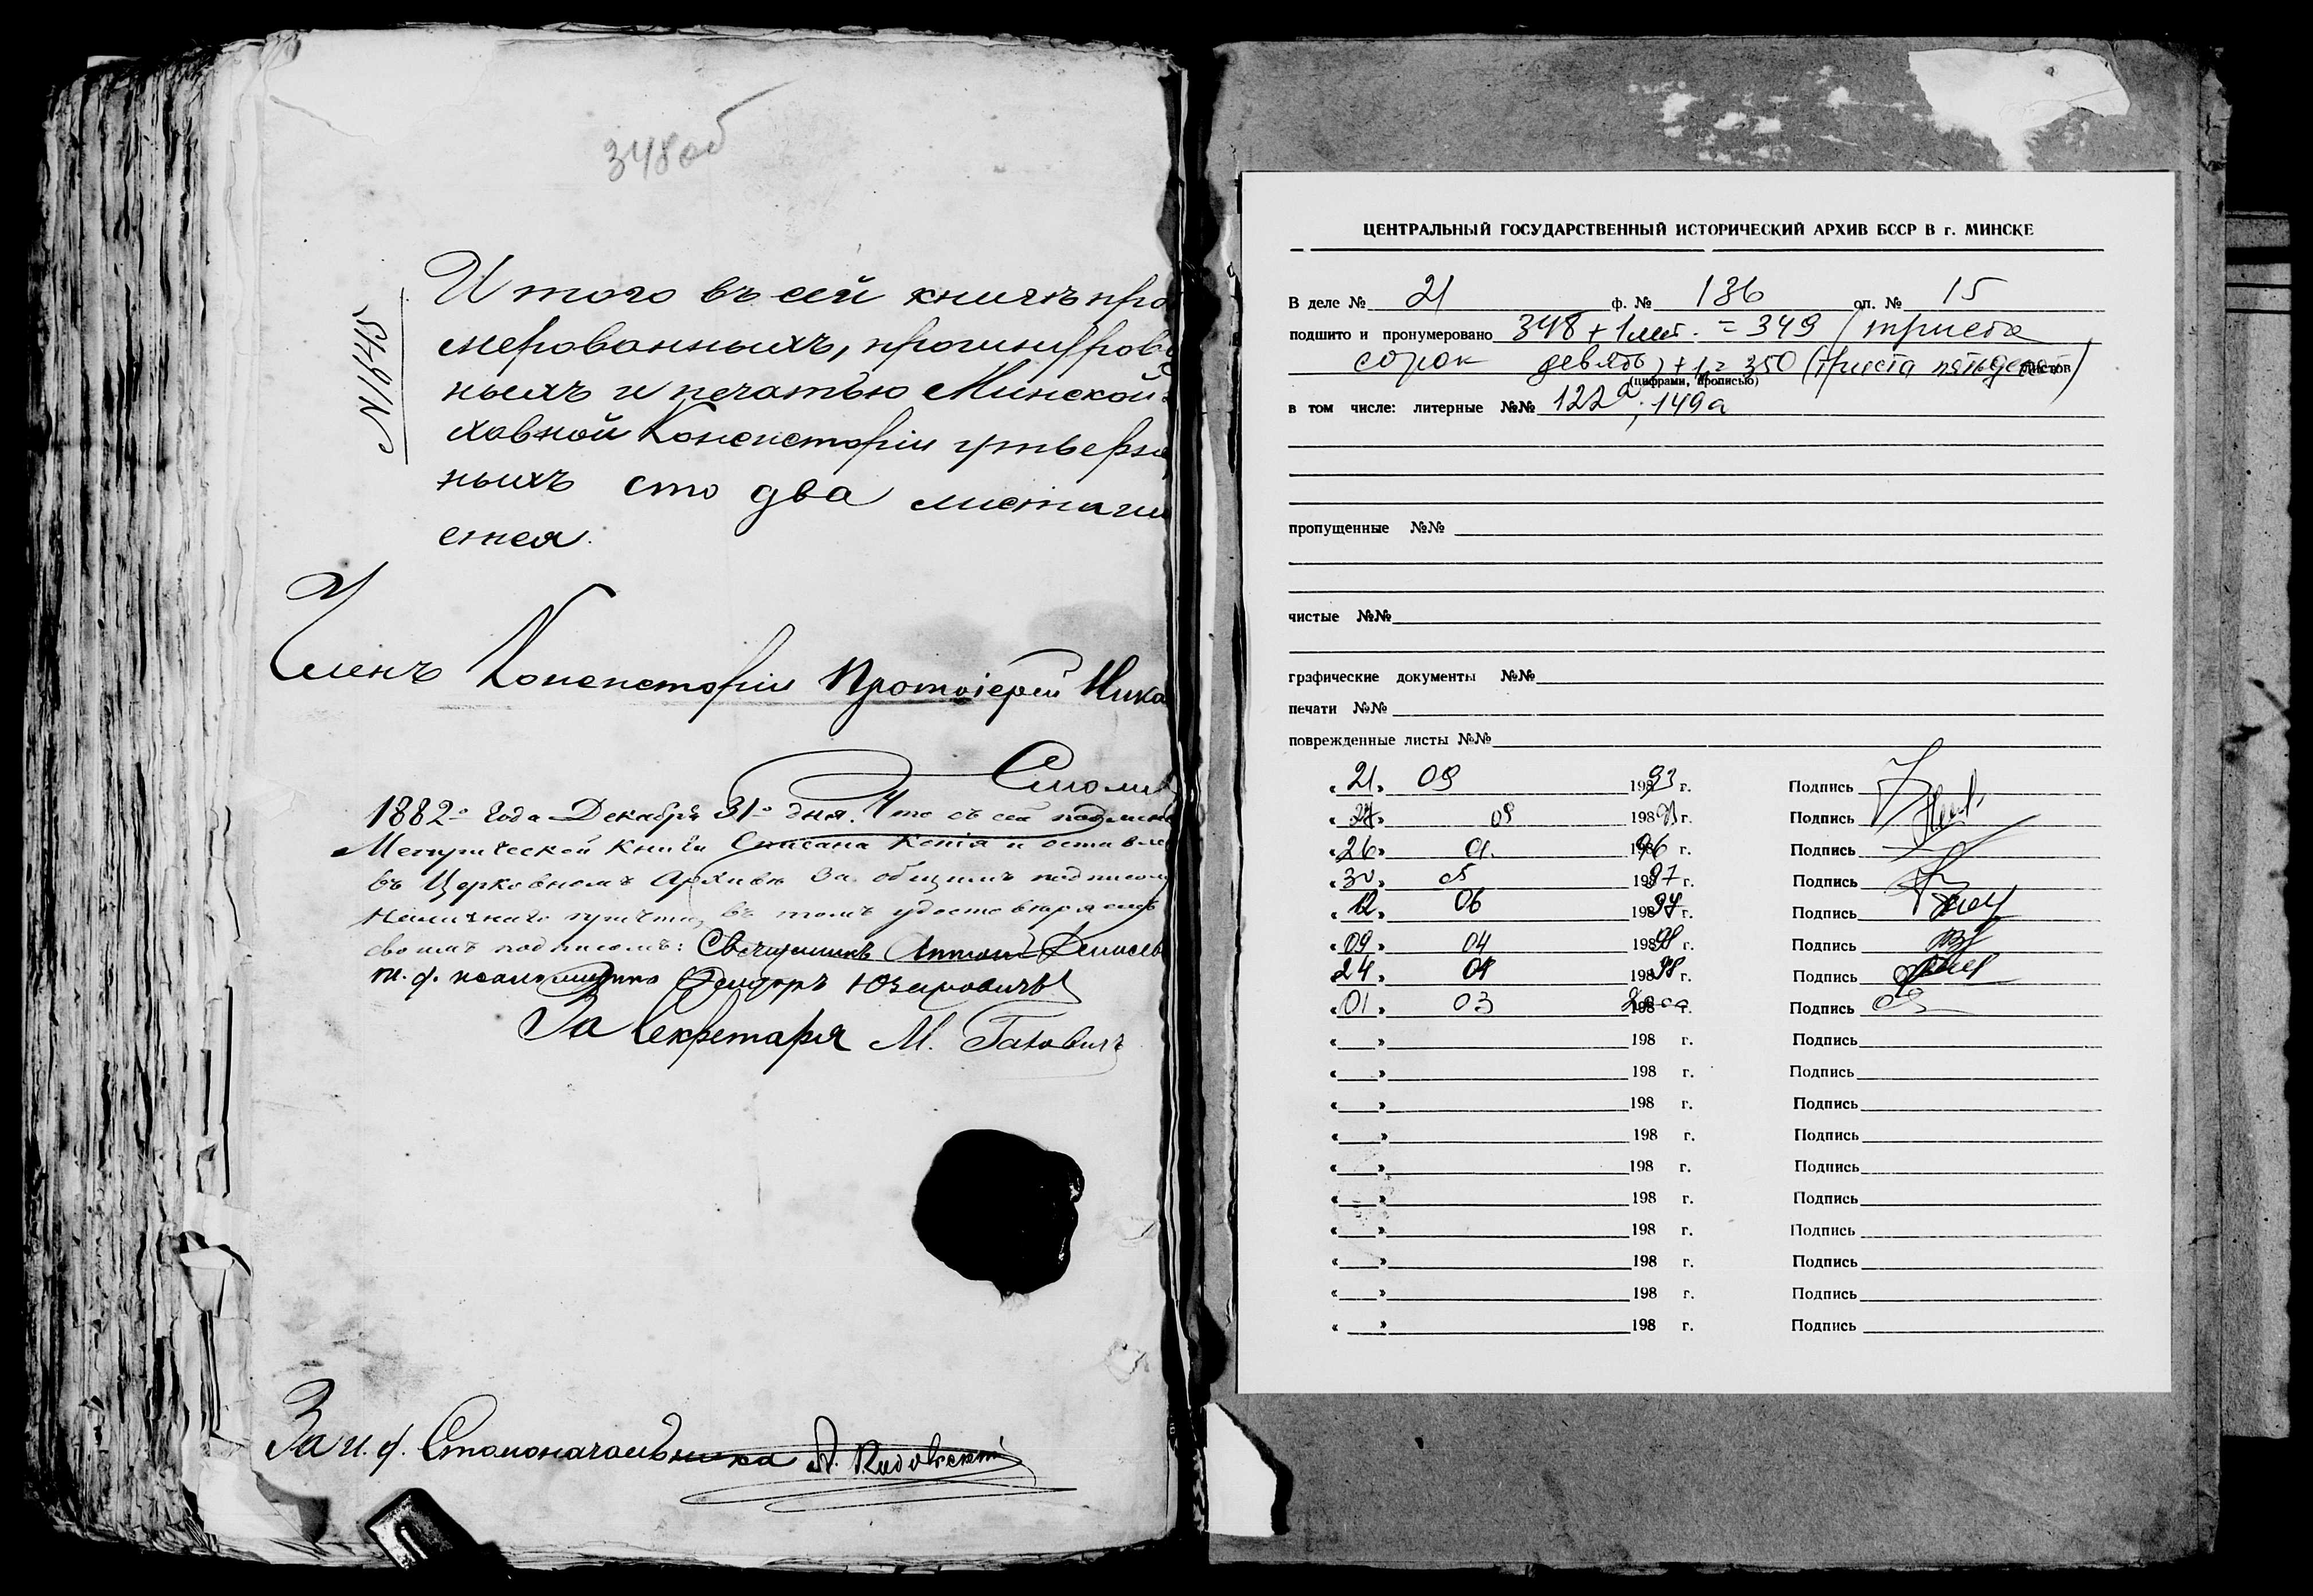 348 об
N 1645
Итого въ сей книгѣ про
мерованныхъ, прошнурова
ныхъ и печатью Минской
ховной Консисторіи утверж
ныхъ сто два листа чи
ется.
Членъ Консисторіи Протоіерей Ника
Смолич
1882го Года Декабря 31го дня. Что съ сей подлин
Метрической Книги Списана Копія и оставле
въ Церковномъ Архивѣ За общимъ подписом
причта, въ томъ удостовѣряемъ
своимъ подписомъ: Священникъ Антоній
и. д. псаломщика Ѳеодоръ Юзефовичъ
За Секретаря М.
За и. д. Столоначальника А.
ЦЕНТРАЛЬНЫЙ ГОСУДАРСТВЕННЫЙ ИСТОРИЧЕСКИЙ АРХИВ БССР В г. МИНСКЕ
В деле № 21 ф. № 136 оп. № 15
подшито и пронумеровано 348 + 1 лит. = 349 (триста
сорок девять) + 1 = 350 (триста пятьдесят) листов
(цифрами, прописью)
в том числе: литерные №№ 122а; 149а
пропущенные №№
чистые №№
графические документы №№
печати №№
поврежденные листы №№
«21» 09 1993 г. Подпись
«27» 09 198 г. Подпись
«26» 01. 1996 г. Подпись
«30» 05 1997 г. Подпись
«12» 06 1997 г. Подпись
«09» 04 1998 г. Подпись
«24» 04 1998 г. Подпись
«01» 03 2000 г. Подпись
« » 198 г. Подпись
« » 198 г. Подпись
« » 198 г. Подпись
« » 198 г. Подпись
« » 198 г. Подпись
« » 198 г. Подпись
« » 198 г. Подпись
« » 198 г. Подпись
« » 198 г. Подпись
« » 198 г. Подпись